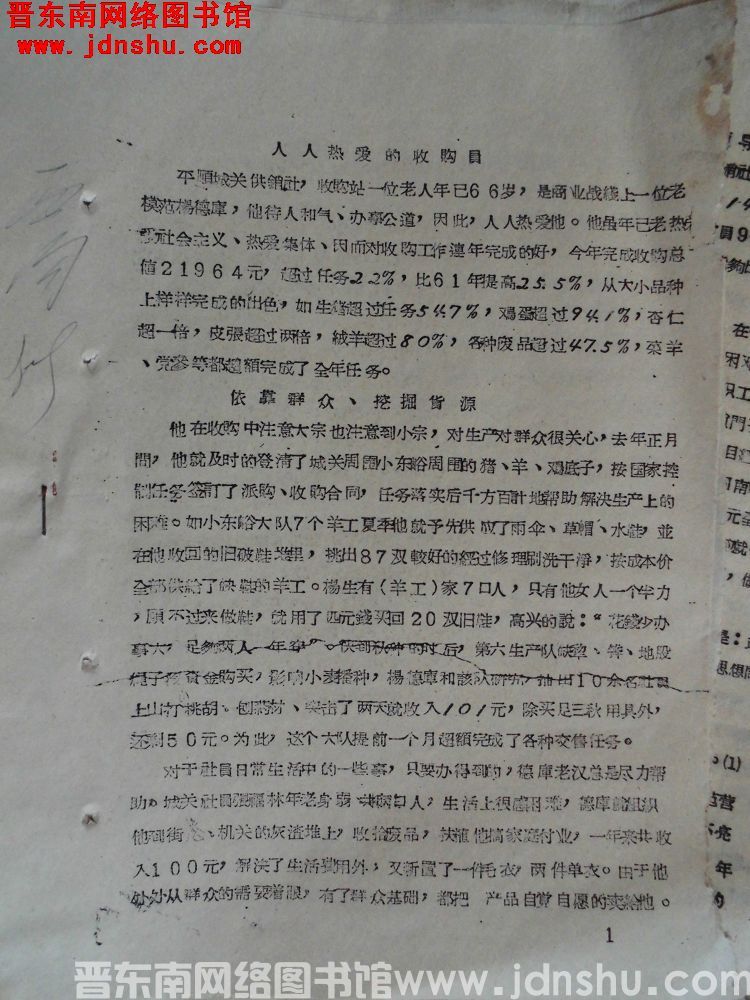 晋东南网络图书馆
www.jdnshu.com
人人热爱的收购员
平順城关供銷社,收购站一位老人年已66岁,是商业战线上一位老
模范楊德庫,他待人和气、办事公道,因此,人人热爱他。他虽年已老热
社会主义、热爱集体、因而对收购工作連年完成的好,今年完成收购总
值21964元,超过任务2.2%,比61年提高25.5%,从大小品种
上样样完成的出色,如生猪超过任务54.7%,鸡蛋超过94.1%,杏仁
超一倍,皮張超过两倍,絨羊超过80%,各种废品超过47.5%,菜羊
、党参等都超額完成了全年任务。
依靠群众、挖掘貨源
他在收购中注意大宗也注意到小宗,对生产对群众很关心,去年正月
間,他就及时的登清了城关周圍小东峪周围的猪、羊、鸡底子,按国家控
制任务签訂了派购、收购合同,任务落实后千方百計地帮助解决生产上的
困难。如小东峪大队7个羊工夏季他就予先供应了雨伞、草帽、水鞋,並
在他收回的旧破鞋堆里,挑出87双較好的經过修理刷洗干淨,按成本价
全部供給了缺鞋的羊工。楊生有(羊工)家7口人,只有他女人一个半力
,顾不过来做鞋,就用了四元錢买回20双旧鞋,高兴的說:“花錢少办
事大,足够两人一年穿”。快到秋种的时后,第六生产队缺犁、耧、地殳
資金购买,影响小麦播种,楊德庫和該队研究,抽出10余名社員
上山打桃胡、刨葯材、突击了两天就收入101元,除买足三秋用具外,
还剩50元。为此,这个大队提前一个月超額完成了各种交售任务。
对于社員日常生活中的一些事,只要办得到的,德庫老汉总是尽力帮
助。城关社員張福林年老身弱 共两口人,生活上很感困难,德庫就組织
他到街 、机关的灰渣堆上,收拾废品,扶植他搞家庭付业,一年来共收
入100元,解决了生活費用外,又新置了一件毛衣,两件单衣。由于他
处处从群众的需要着眼,有了群众基础,都把 产品自觉自愿的卖給他。
1
晋东南网络图书馆www.jdnshu.com